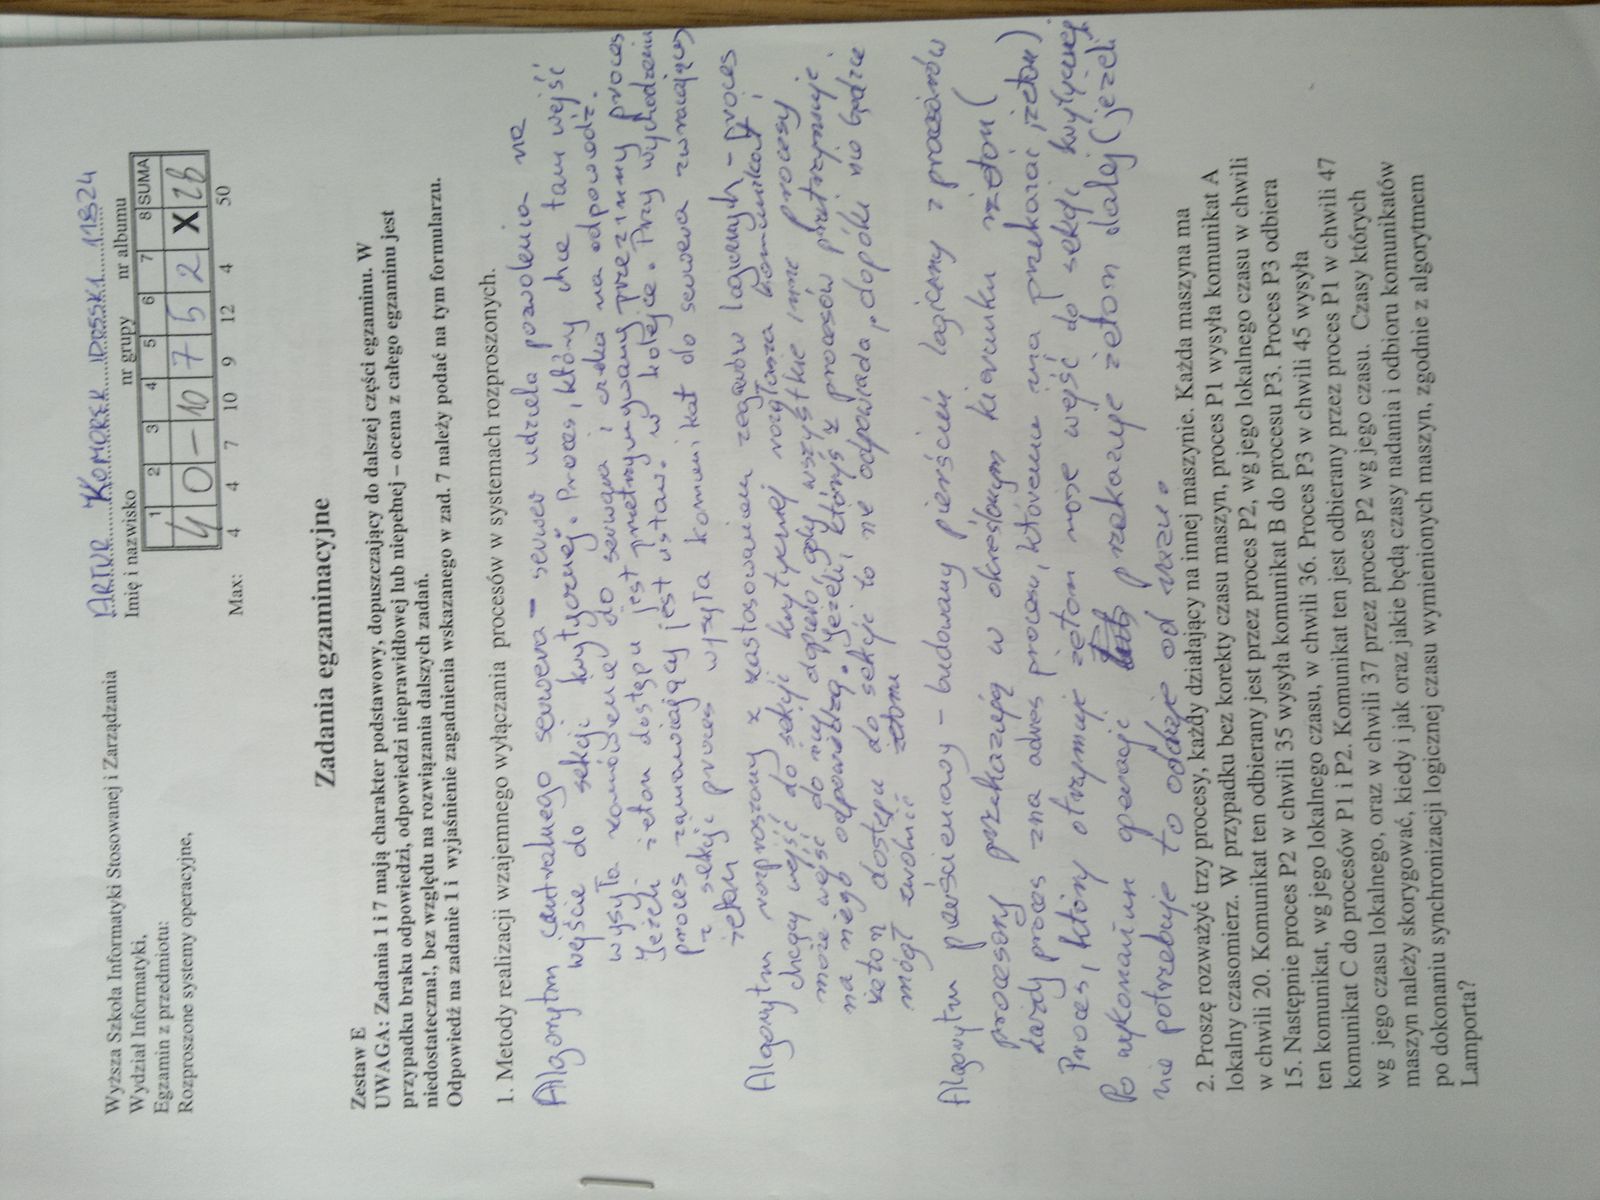 Wyższa Szkoła Informatyki Stosowanej i Zarządzania
Wydział Informatyki,
Egzamin z przedmiotu:
Rozproszone systemy operacyjne,
ARTUR KOMOREK ID05SK1 11824
Imię i nazwisko nr grupy nr albumu
1 2 3 4 5 6 7 8 SUMA
4 0 – 10 7 5 2 X 28
Max: 4 4 7 10 9 12 4 50
Zadania egzaminacyjne
Zestaw E
UWAGA: Zadania 1 i 7 mają charakter podstawowy, dopuszczający do dalszej części egzaminu. W
przypadku braku odpowiedzi, odpowiedzi nieprawidłowej lub niepełnej – ocena z całego egzaminu jest
niedostateczna!, bez względu na rozwiązania dalszych zadań.
Odpowiedź na zadanie 1 i wyjaśnienie zagadnienia wskazanego w zad. 7 należy podać na tym formularzu.
1. Metody realizacji wzajemnego wyłączania procesów w systemach rozproszonych.
Algorytm centralnego serwera – serwer udziela pozwolenia na
wejście do sekcji krytycznej. Proces, który chce tam wejść
wysyła zamówienie do serwera i czeka na odpowiedź.
Jeżeli żeton dostępu jest przetrzymywany przez inny proces
proces zamawiający jest ustaw. w kolejce. Przy wychodzeniu
z sekcji proces wysyła komunikat do serwera zwracający
żeton
Algorytm rozproszony z zastosowaniem zegarów logicznych – proces
chcący wejść do sekcji krytycznej rozgłasza komunikat i
może wejść do niej dopiero, gdy wszystkie inne procesy
na niego odpowiedzą. Jeżeli, któryś z procesów przetrzymuje
żeton dostępu do sekcji to nie odpowiada, dopóki nie będzie
mógł zwolnić żetonu
Algorytm pierścieniowy – budowany pierścień logiczny z procesorów
procesory przekazują w określonym kierunku żeton (
każdy proces zna adres procesu, któremu ma przekazać żeton)
Proces, który otrzymuje żeton może wejść do sekcji krytycznej
Po wykonaniu operacji przekazuje żeton dalej (jeżeli
nie potrzebuje to oddaje od razu.
2. Proszę rozważyć trzy procesy, każdy działający na innej maszynie. Każda maszyna ma
lokalny czasomierz. W przypadku bez korekty czasu maszyn, proces P1 wysyła komunikat A
w chwili 20. Komunikat ten odbierany jest przez proces P2, wg jego lokalnego czasu w chwili
15. Następnie proces P2 w chwili 35 wysyła komunikat B do procesu P3. Proces P3 odbiera
ten komunikat, wg jego lokalnego czasu, w chwili 36. Proces P3 w chwili 45 wysyła
komunikat C do procesów P1 i P2. Komunikat ten jest odbierany przez proces P1 w chwili 47
wg jego czasu lokalnego, oraz w chwili 37 przez proces P2 wg jego czasu. Czasy których
maszyn należy skorygować, kiedy i jak oraz jakie będą czasy nadania i odbioru komunikatów
po dokonaniu synchronizacji logicznej czasu wymienionych maszyn, zgodnie z algorytmem
Lamporta?